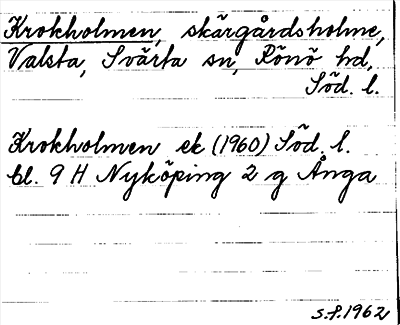 Krokholmen, skärgårdsholme,
Valsta, Svärta sn, Rönö hd,
Söd. l.
Krokholmen ek (1960) Söd. l.
bl. 9 H Nyköping 2 g Ånga
s.f. 1962